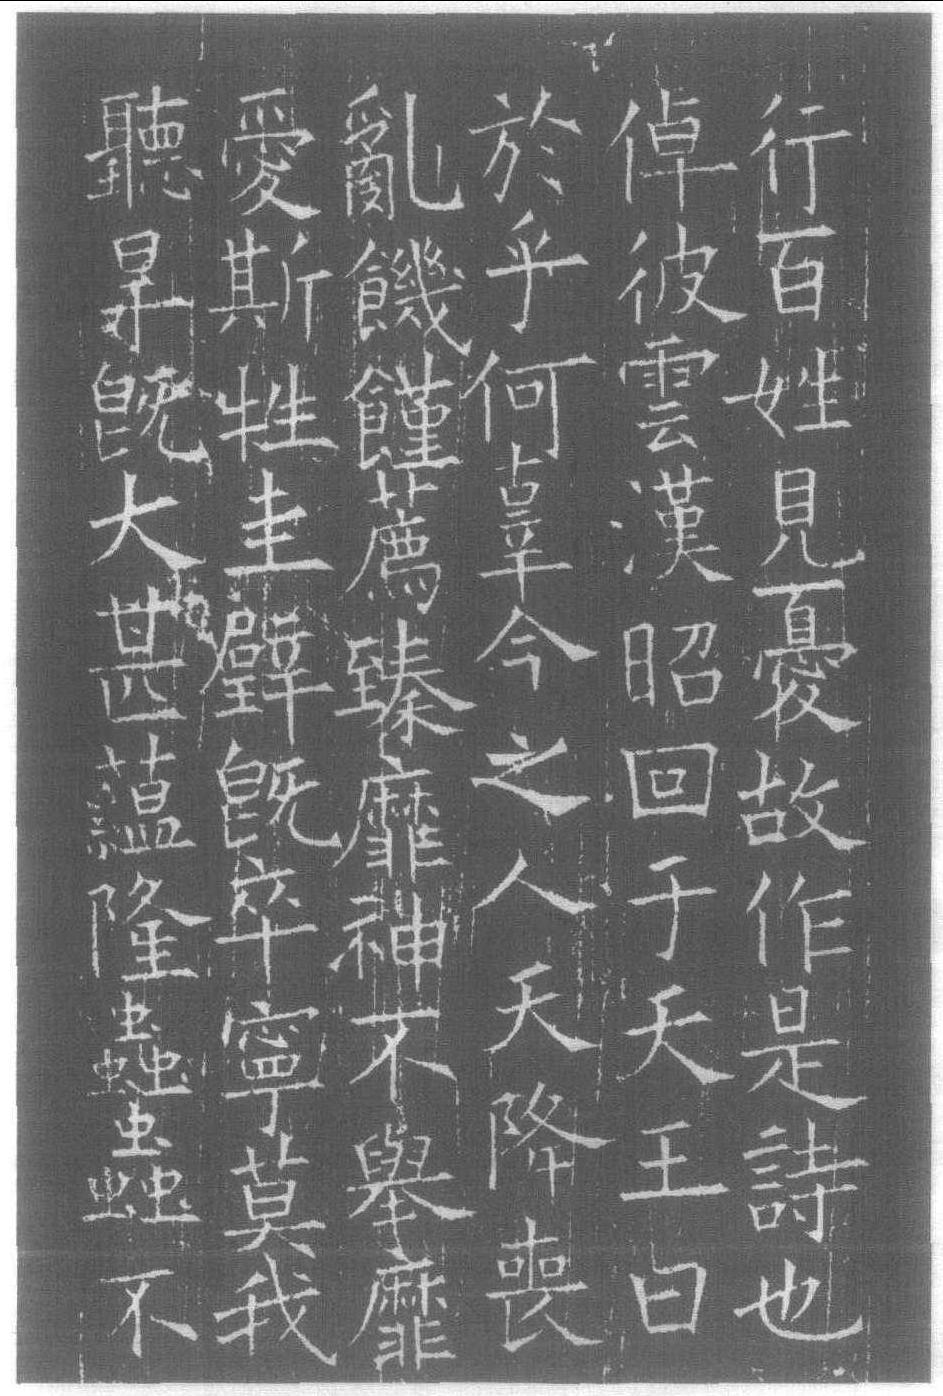 行百姓見憂故作是詩也
倬彼雲漢昭回于天王曰
於乎何辜今之人天降喪
亂饑饉薦臻靡神不舉靡
愛斯牲圭璧既卒寧莫我
聽旱既大甚蘊隆蟲蟲不